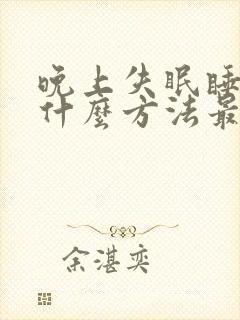 晚上失眠睡
什麼方法最
余湛奕